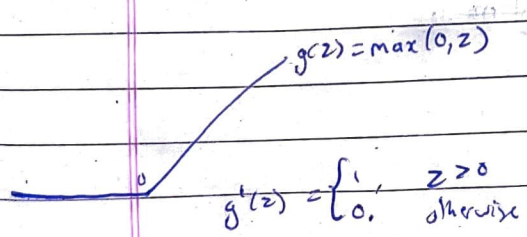 g(z) = max(0,z)
0
g'(z) = { 1, z>0
0. otherwise